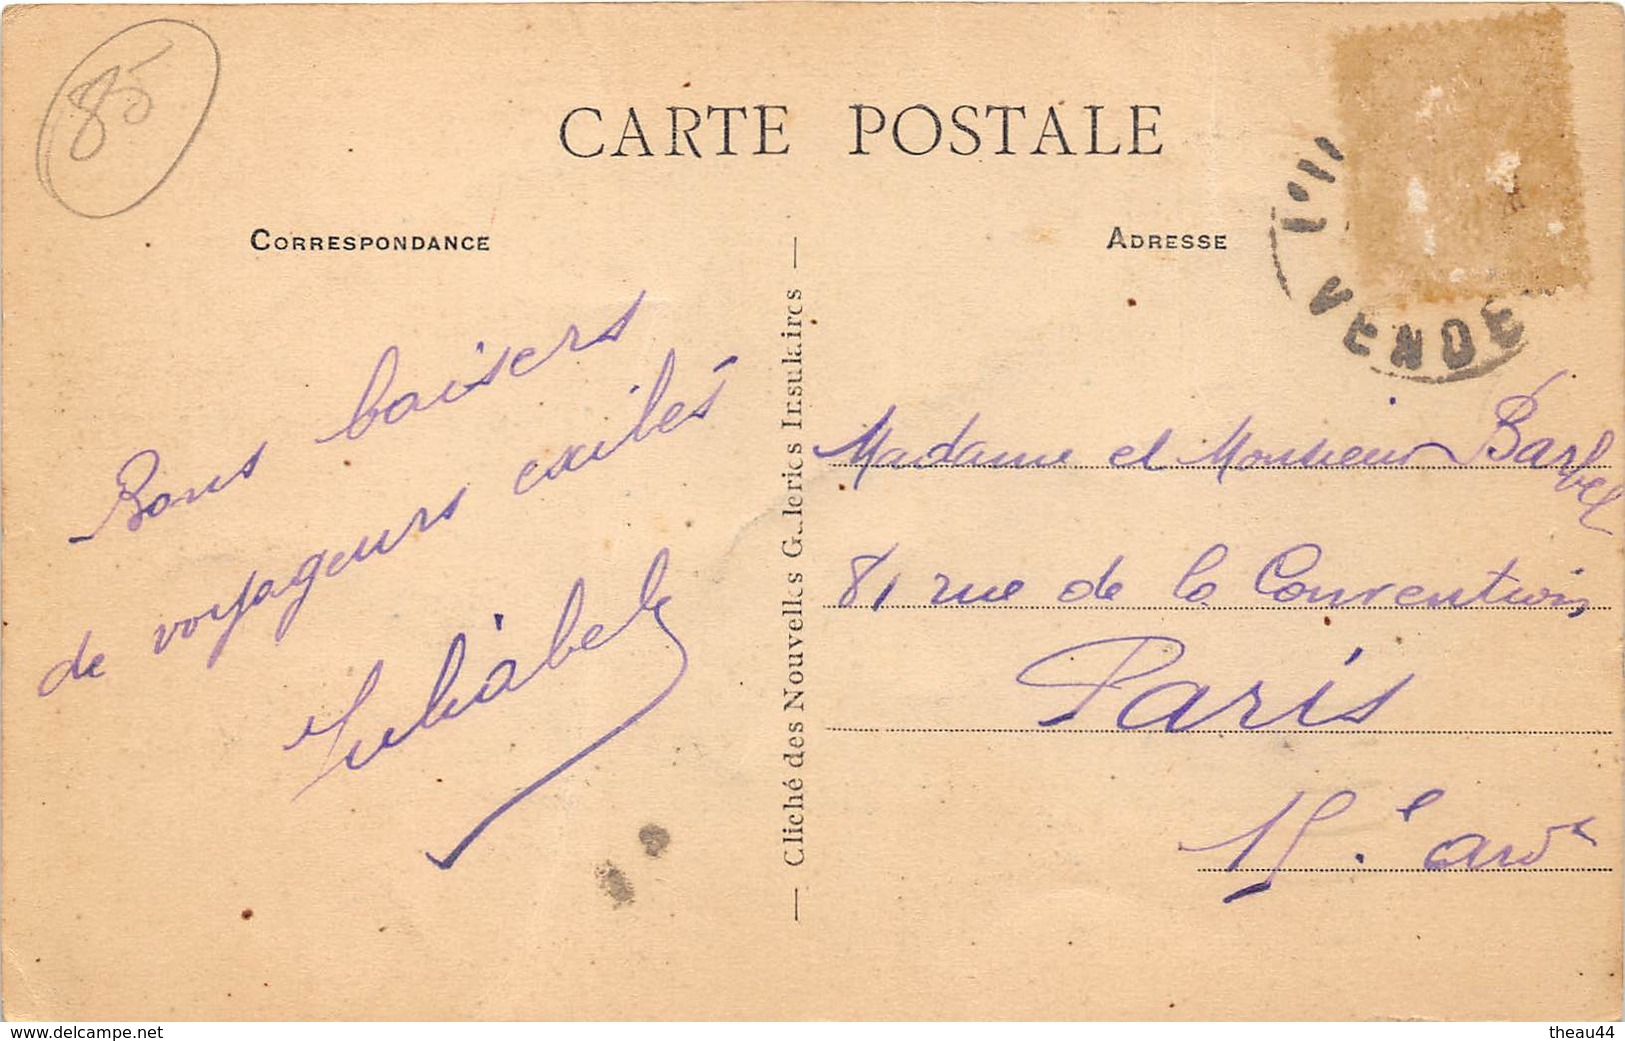 85
CARTE POSTALE
CORRESPONDANCE
ADRESSE
VENDE
Bons baisers
de voyageurs exilés
— Cliché des Nouvelles Galeries Insulaires —
Madame et Monsieur Barbel
81 rue de la Convention
Paris
15e ardt
www.delcampe.net
theau44